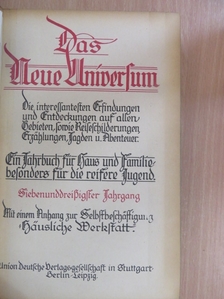 Das
Neue Universum
Die interessantesten Erfindungen
und Entdeckungen auf allen
Gebieten, sowie Reiseschilderungen,
Erzählungen, Jagden u. Abenteuer.
Ein Jahrbuch für Haus und Familie
besonders für die reifere Jugend.
Siebenunddreißigster Jahrgang
Mit einem Anhang zur Selbstbeschäftigung
"Häusliche Werkstatt".
Union Deutsche Verlagsgesellschaft in Stuttgart
Berlin-Leipzig